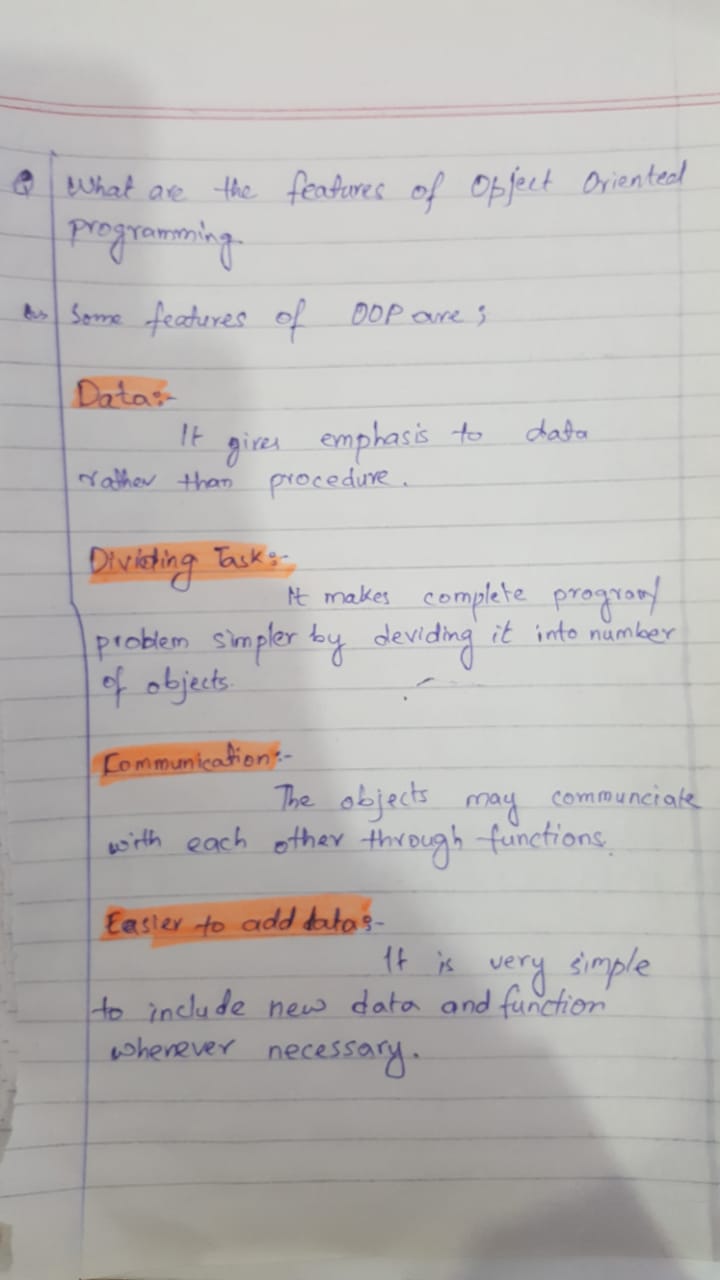 Q What are the features of Object Oriented
programming.
Ans Some features of OOP are ;
Data:-
It gives emphasis to data
rather than procedure.
Dividing Task:-
It makes complete program/
problem simpler by deviding it into number
of objects.
Communication:-
The objects may communciate
with each other through functions.
Easier to add data:-
It is very simple
to include new data and function
whenever necessary.